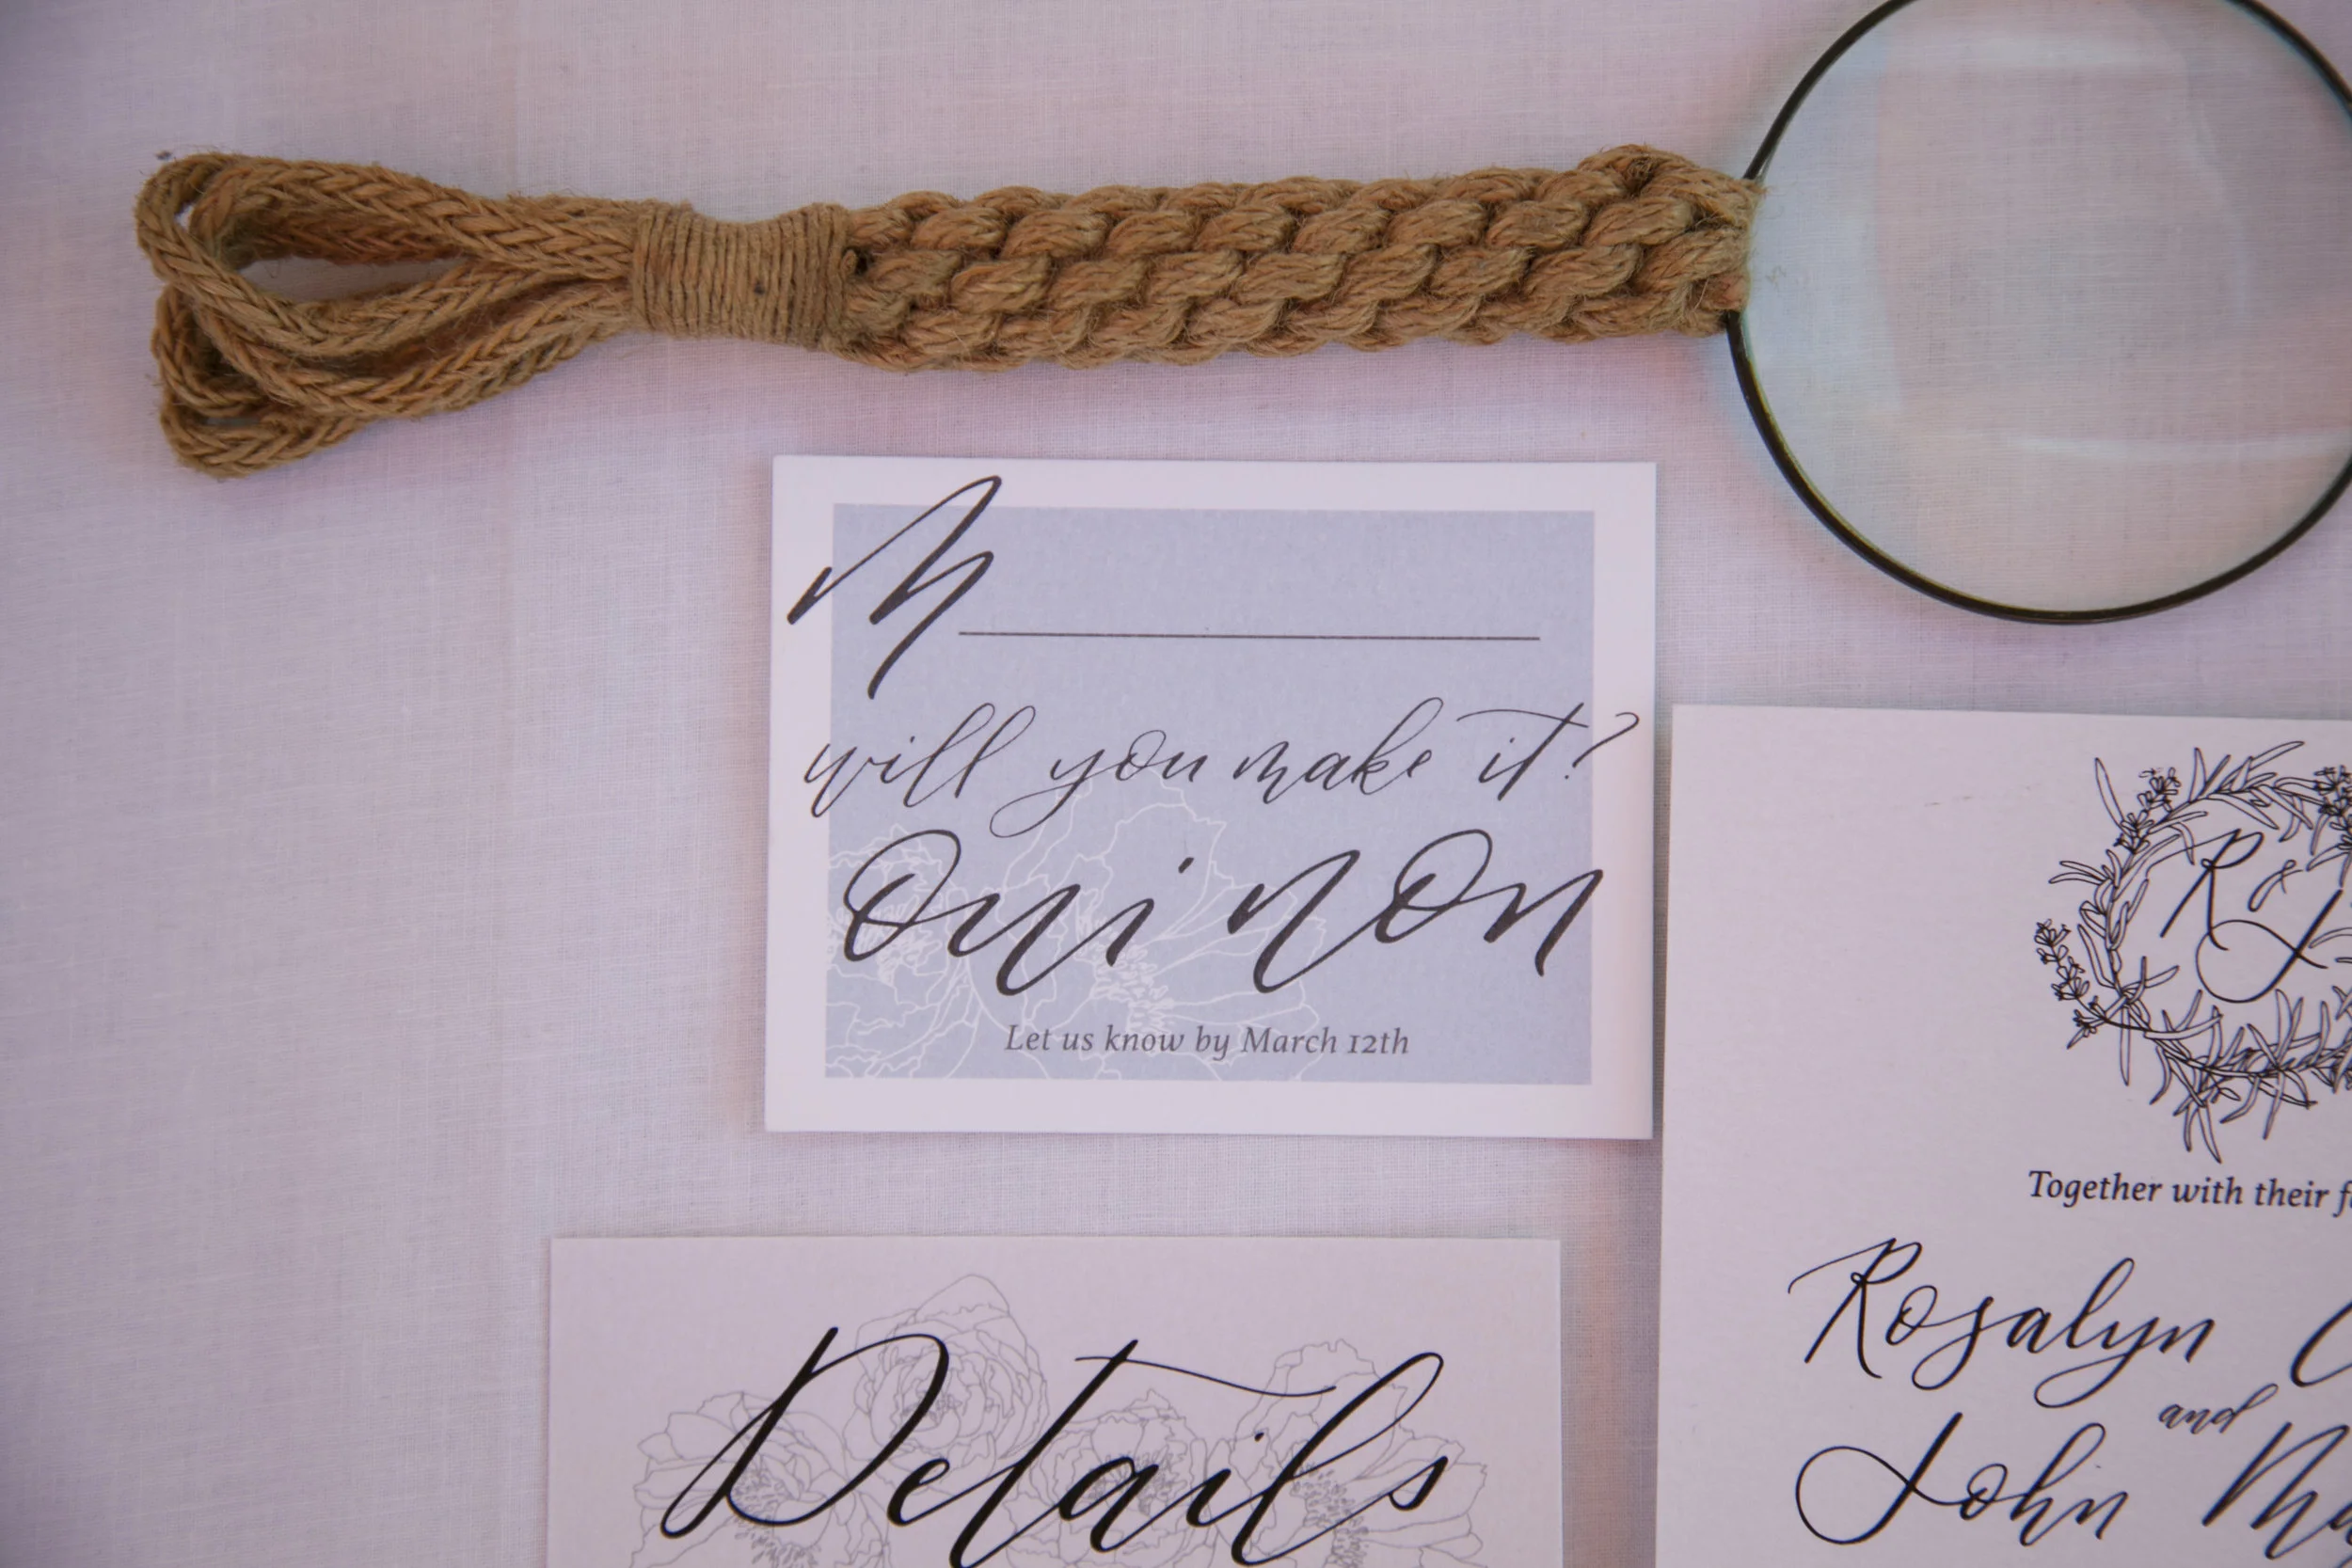 M
will you make it?
Oui Non
Let us know by March 12th
R & J
Together with their
Rosalyn
and
John
Details